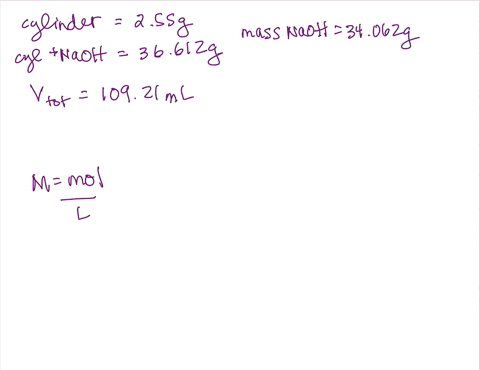 cylinder = 2.55g
cyl + NaOH = 36.612g
mass NaOH = 34.062g
Vtot = 109.21 mL
M = mol
L